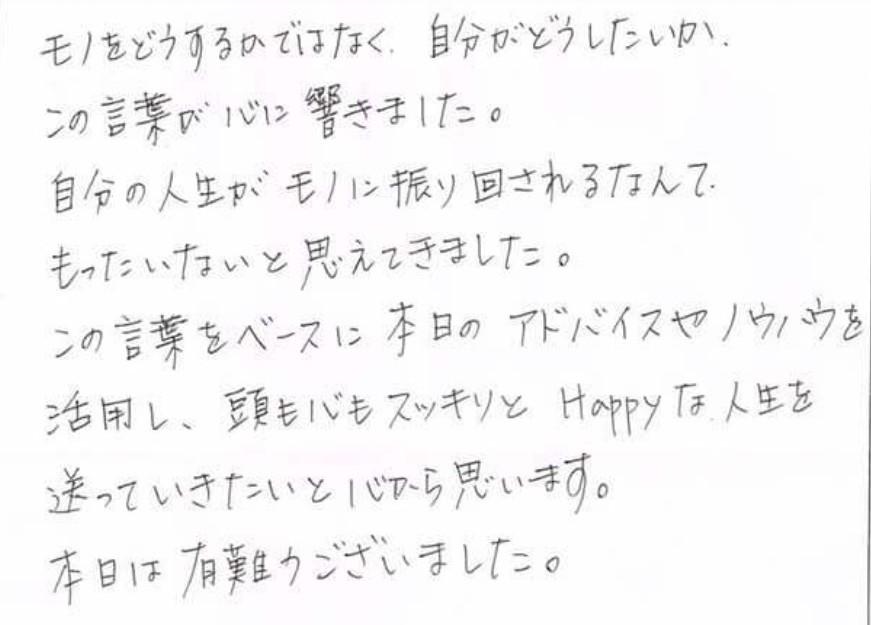 モノをどうするかではなく、自分がどうしたいか、
この言葉が心に響きました。
自分の人生がモノに振り回されるなんて、
もったいないと思えてきました。
この言葉をベースに本日のアドバイスやノウハウを
活用し、頭も心もスッキリと Happyな人生を
送っていきたいと心から思います。
本日は有難うございました。